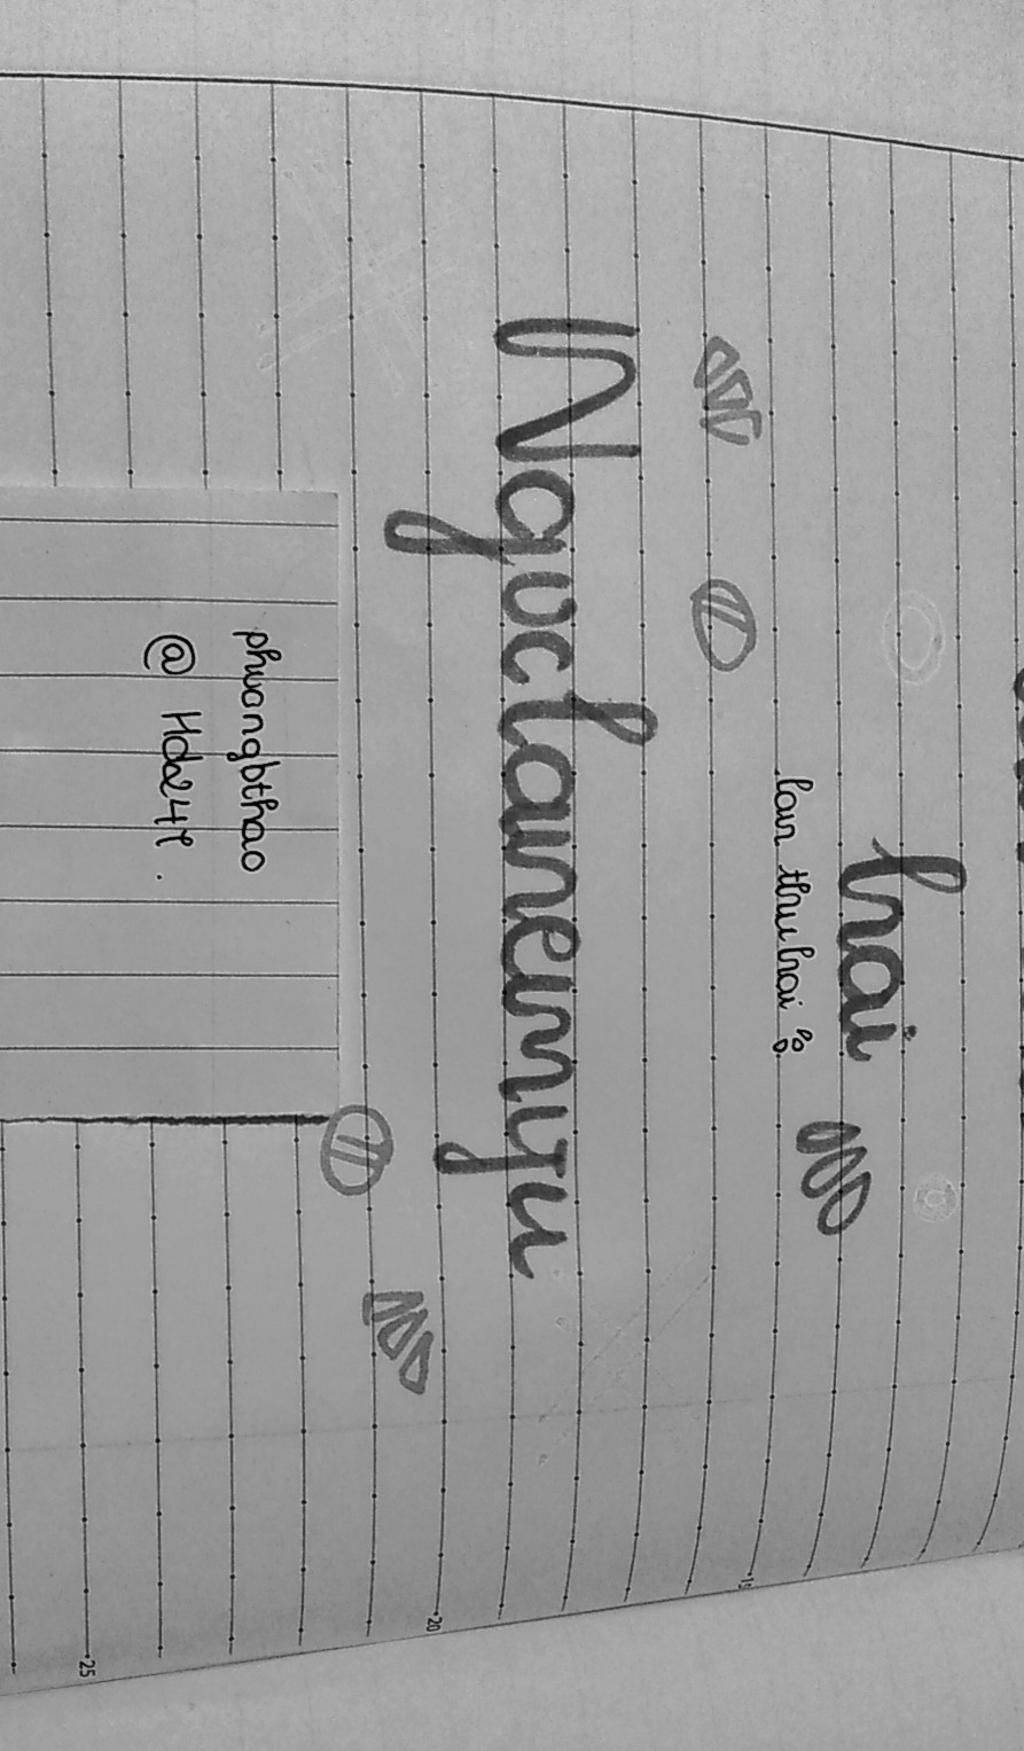 hai
lan thu hai
Ngoclanemyu
phuongbthao
@ Hda241.
15
20
25